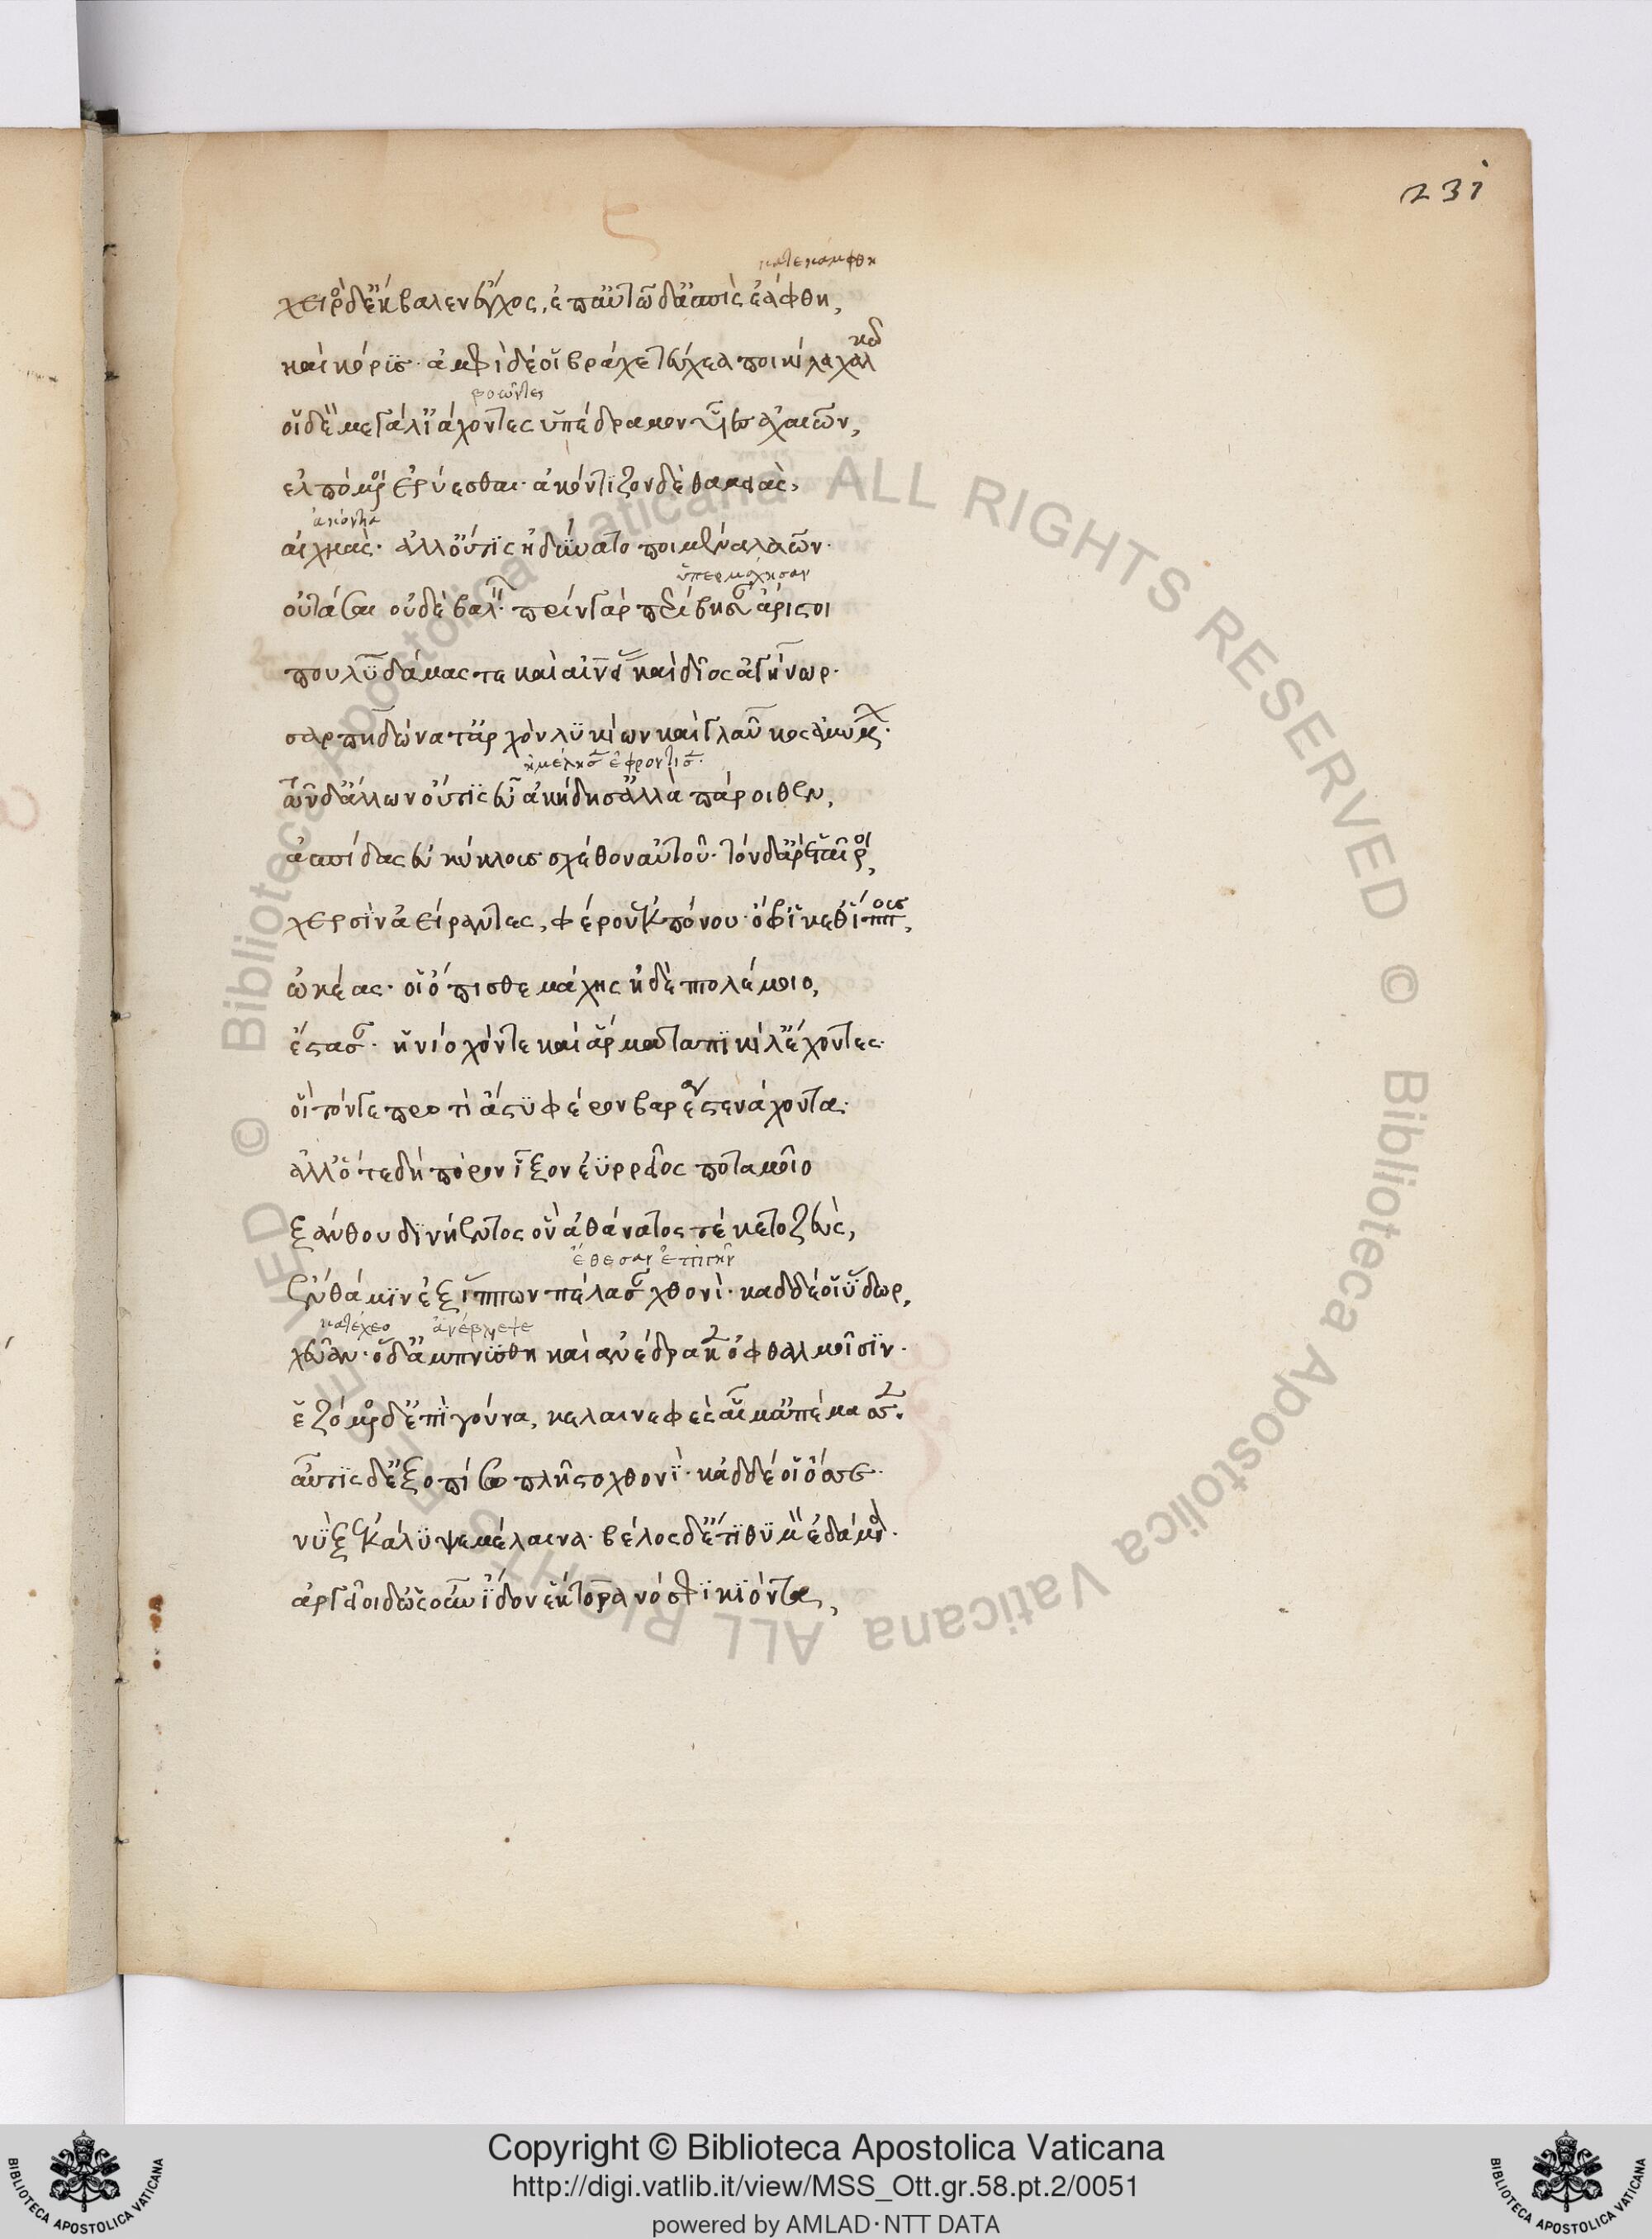 231
κατεκάμφθη
χειρὸς δ' ἔκβαλεν ἔγχος, ἐπ' αὐτῶ δ' ἀσπὶς ἑάφθη,
καὶ κόρυς· ἀμφὶ δέ οἱ βράχε τεύχεα ποικίλα χαλκῶ
βοῶντες
οἱ δὲ μεγάλ' ἰάχοντες ὑπέδραμον υἷες ἀχαιῶν,
ἐλπόμενοι ἐρύεσθαι· ἀκόντιζον δὲ θαμειὰς,
ἀκόντια
αἰχμὰς· ἀλλ' οὔτις ἠδύνατο ποιμένα λαῶν·
ὑπερμάχησαν
οὐτάσαι οὐδὲ βαλεῖν· πρὶν γὰρ περίβησαν ἄριστοι
πουλυδάμας τε καὶ αἰνείας καὶ δῖος ἀγήνωρ·
σαρπηδών τ' ἀρχὸς λυκίων καὶ γλαῦκος ἀμύμων·
ἠμέλησεν ἐφρόντισεν·
τῶν δ' ἄλλων οὔτις εὑ ἀκήδησ' ἀλλὰ πάροιθεν,
ἀσπίδας εὐκύκλους σχέθον αὐτοῦ· τὸν δ' ἄρ' ἑταῖροι,
χερσὶν ἀείραντες, φέρον ἐκ πόνου· ὄφρ' ἵκεθ' ἵππους,
ὠκέας· οἵ οἱ ὄπισθε μάχης ἠδὲ πολέμοιο,
ἕστασαν· ἡνίοχόν τε καὶ ἅρματα ποικίλ' ἔχοντες·
οἳ τόν γε προτὶ ἄστυ φέρον βαρέα στενάχοντα·
ἀλλ' ὅτε δὴ πόρον ἷξον ἐϋρρεῖος ποταμοῖο
ξάνθου δινήεντος ὃν ἀθάνατος τέκετο ζεὺς,
ἔθεσαν ἐπὶ τὴν
ἔνθά μιν ἐξ ἵππων πέλασαν χθονὶ· καδδέ οἱ ὕδωρ,
κατέχεο ἀνέβλεψε
χεῦαν· ὁ δ' ἀμπνύσθη καὶ ἀνέδρακεν ὀφθαλμοῖσιν·
ἑζόμενος δ' ἐπὶ γοῦνα, κελαινεφὲς αἷμ' ἀπέμασσεν.
αὖτις δ' ἐξοπίσω πλῆτο χθονὶ· κάδδέ οἱ ὄσσε·
νὺξ ἐκάλυψε μέλαινα· βέλος δ' ἔτι θυμὸν ἐδάμνα·
ἀργεῖοι δ' ὡς οὖν ἴδον ἕκτορα νόσφι κιόντα,
Copyright © Biblioteca Apostolica Vaticana
http://digi.vatlib.it/view/MSS_Ott.gr.58.pt.2/0051
powered by AMLAD·NTT DATA
BIBLIOTECA APOSTOLICA VATICANA
BIBLIOTECA APOSTOLICA VATICANA
© Biblioteca Apostolica Vaticana ALL RIGHTS RESERVED © Biblioteca Apostolica Vaticana ALL RIGHTS RESERVED